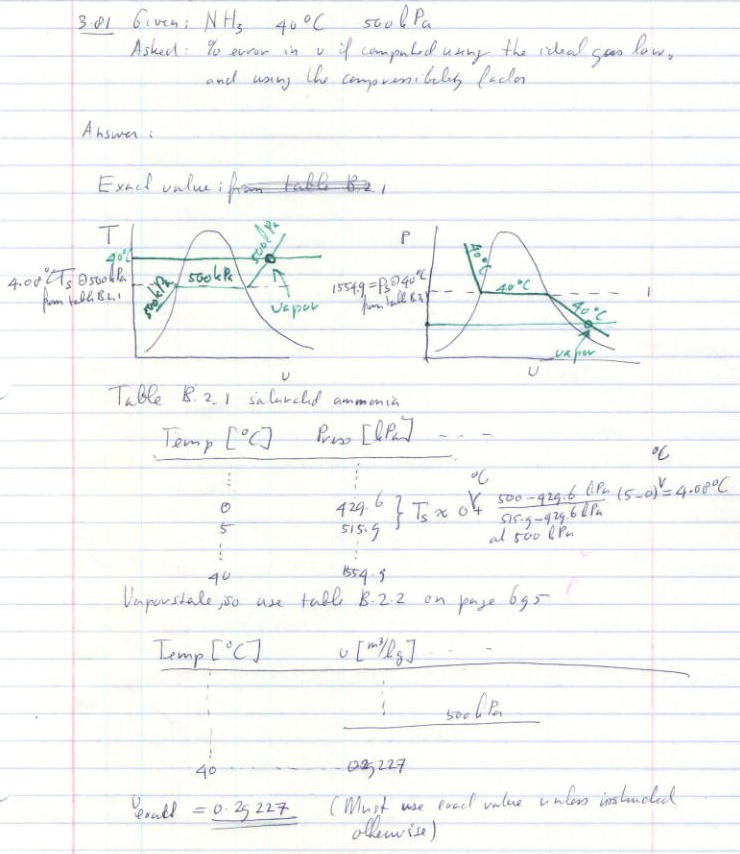 3.81 Given: NH3 40°C 500 kPa
Asked: % error in v if computed using the ideal gas law,
and using the compressibility factor
Answer:
Exact value: from table B.2.1
T
40°C
4.08°C Ts @500kPa
from table B.2.1
500kPa
500kPa
500kPa
vapor
v
P
1554.9 = Ps @40°C
from table B.2.1
40°C
40°C
40°C
vapor
v
Table B.2.1 saturated ammonia
Temp [°C] Press [kPa] ...
0 429.6
5 515.9
} Ts ≈ 0°C + (500-429.6 kPa)/(515.9-429.6 kPa) (5-0)°C = 4.08°C
at 500 kPa
40 1554.9
Vapor state, so use table B.2.2 on page 695
Temp [°C] v [m³/kg] ...
500 kPa
40 ... 0.29227
v exact = 0.29227 (Must use exact value unless instructed
otherwise)